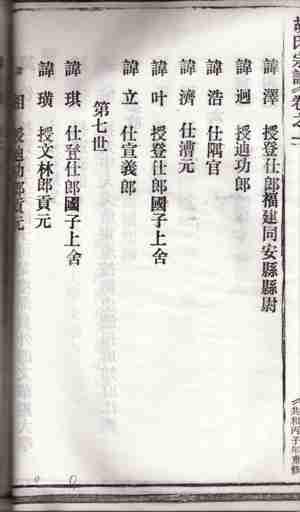 胡氏宗譜卷之
共和丙子年重修
諱澤 授登仕郎福建同安縣縣尉
諱迥 授迪功郎
諱浩 仕隅官
諱濟 仕漕元
諱叶 授登仕郎國子上舍
諱立 仕宣義郎
第七世
諱琪 仕登仕郎國子上舍
諱璜 授文林郎貢元
授迪功郎貢元